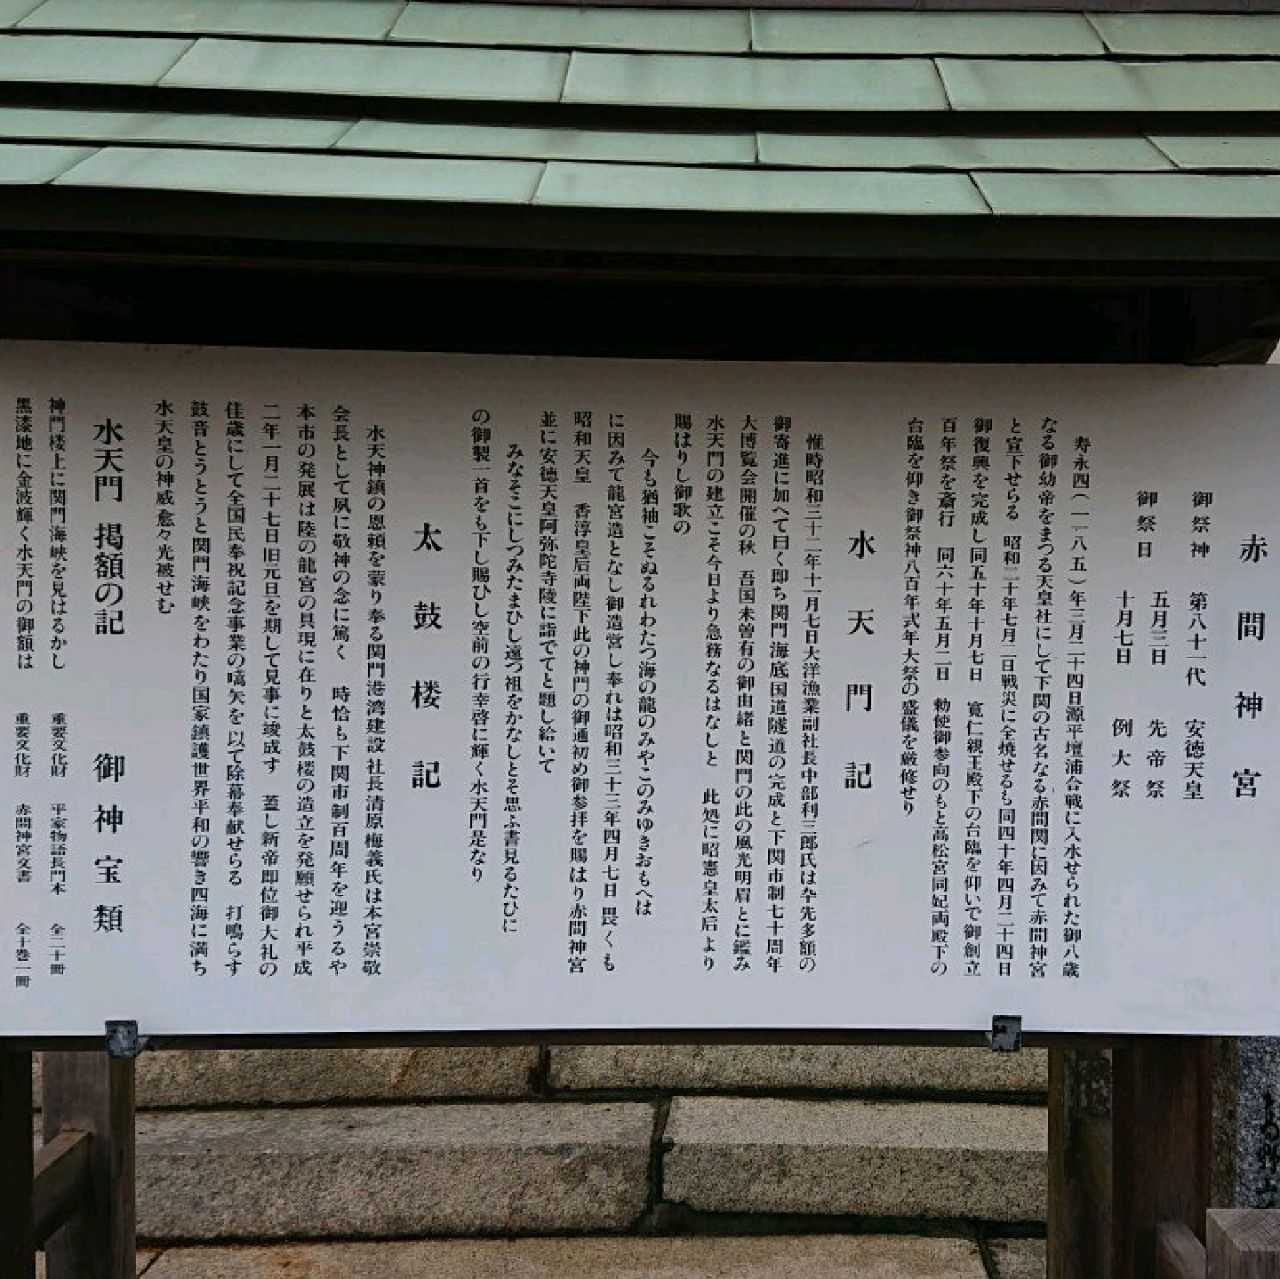 赤間神宮
御祭神 第八十一代 安徳天皇
御祭日 五月三日 先帝祭
十月七日 例大祭
寿永四(一一八五)年三月二十四日源平壇浦合戦に入水せられた御八歳
なる御幼帝をまつる天皇社にして下関の古名なる赤間関に因みて赤間神宮
と宣下せらる 昭和二十年七月二日戦災に全焼せるも同四十年四月二十四日
御復興を完成し同五十年十月七日 寛仁親王殿下の台臨を仰いで御創立
百年祭を斎行 同六十年五月二日 勅使御参向のもと高松宮同妃両殿下の
台臨を仰き御祭神八百年式年大祭の盛儀を厳修せり
水天門記
惟時昭和三十二年十一月七日大洋漁業副社長中部利三郎氏は卆先多額の
御寄進に加へて曰く即ち関門海底国道隧道の完成と下関市制七十周年
大博覧会開催の秋 吾国未曽有の御由緒と関門の此の風光明眉とに鑑み
水天門の建立こそ今日より急務なるはなしと 此処に昭憲皇太后より
賜はりし御歌の
今も猶袖こそぬるれわたつ海の龍のみやこのみゆきおもへは
に因みて龍宮造となし御造営し奉れは昭和三十三年四月七日 畏くも
昭和天皇 香淳皇后両陛下此の神門の御通初め御参拝を賜はり赤間神宮
並に安徳天皇阿弥陀寺陵に詣でてと題し給いて
みなそこにしつみたまひし遠つ祖をかなしとそ思ふ書見るたひに
の御製一首をも下し賜ひし空前の行幸啓に輝く水天門是なり
太鼓楼記
水天神鎮の恩頼を蒙り奉る関門港湾建設社長清原梅義氏は本宮崇敬
会長として夙に敬神の念に篤く 時恰も下関市制百周年を迎うるや
本市の発展は陸の龍宮の具現に在りと太鼓楼の造立を発願せられ平成
二年一月二十七日旧元旦を期して見事に竣成す 蓋し新帝即位御大礼の
佳歳にして全国民奉祝記念事業の嚆矢を以て除幕奉献せらる 打鳴らす
鼓音とうとうと関門海峡をわたり国家鎮護世界平和の響き四海に満ち
水天皇の神威愈々光被せむ
水天門 掲額の記 御神宝類
神門楼上に関門海峡を見はるかし 重要文化財 平家物語長門本 全二十冊
黒漆地に金波輝く水天門の御額は 重要文化財 赤間神宮文書 全十巻一冊